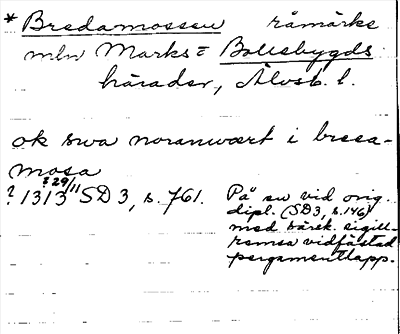 * Bredamossen råmärke
mln Marks = Bollebygds
härader, Älvsb. l.
ok swa noranwært i breea-
mosa
? 29/11
? 1313 SD 3, s. 761.
På sv vid orig.
dipl. (SD3, s.146)
med särsk. sigill-
remsa vidfästad
pergamentlapp.